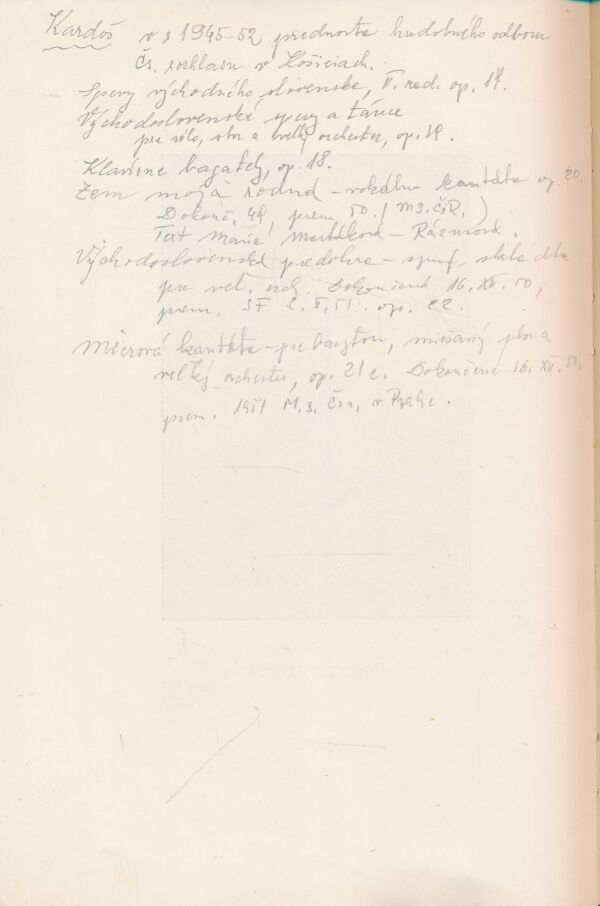 Kardoš v r 1945-52 prednosta hudobného odboru
Čs. rozhlasu v Košiciach.
Spevy východného Slovenska, II. rad. op. 17.
Východoslovenské spevy a tance
pre sólo, sbor a veľký orchester, op.
Klavírne bagately, op. 18.
Zem moja rodná - vokálna kantáta op. 20.
Dokonč. 48, prem 50. / M. S. ČSR.)
Text Mária Martáková - Rázusová.
Východoslovenská predohra - symf. skladba
pre veľ. orch. Dokončená 16. XII. 50,
prem. SF 2. II. 51. op. 22.
Mierová kantáta - pre barytón, miešaný sbor a
veľký orchester, op. 21 Dokončená 16. XII. 50,
prem. 1951 M. S. v Prahe.